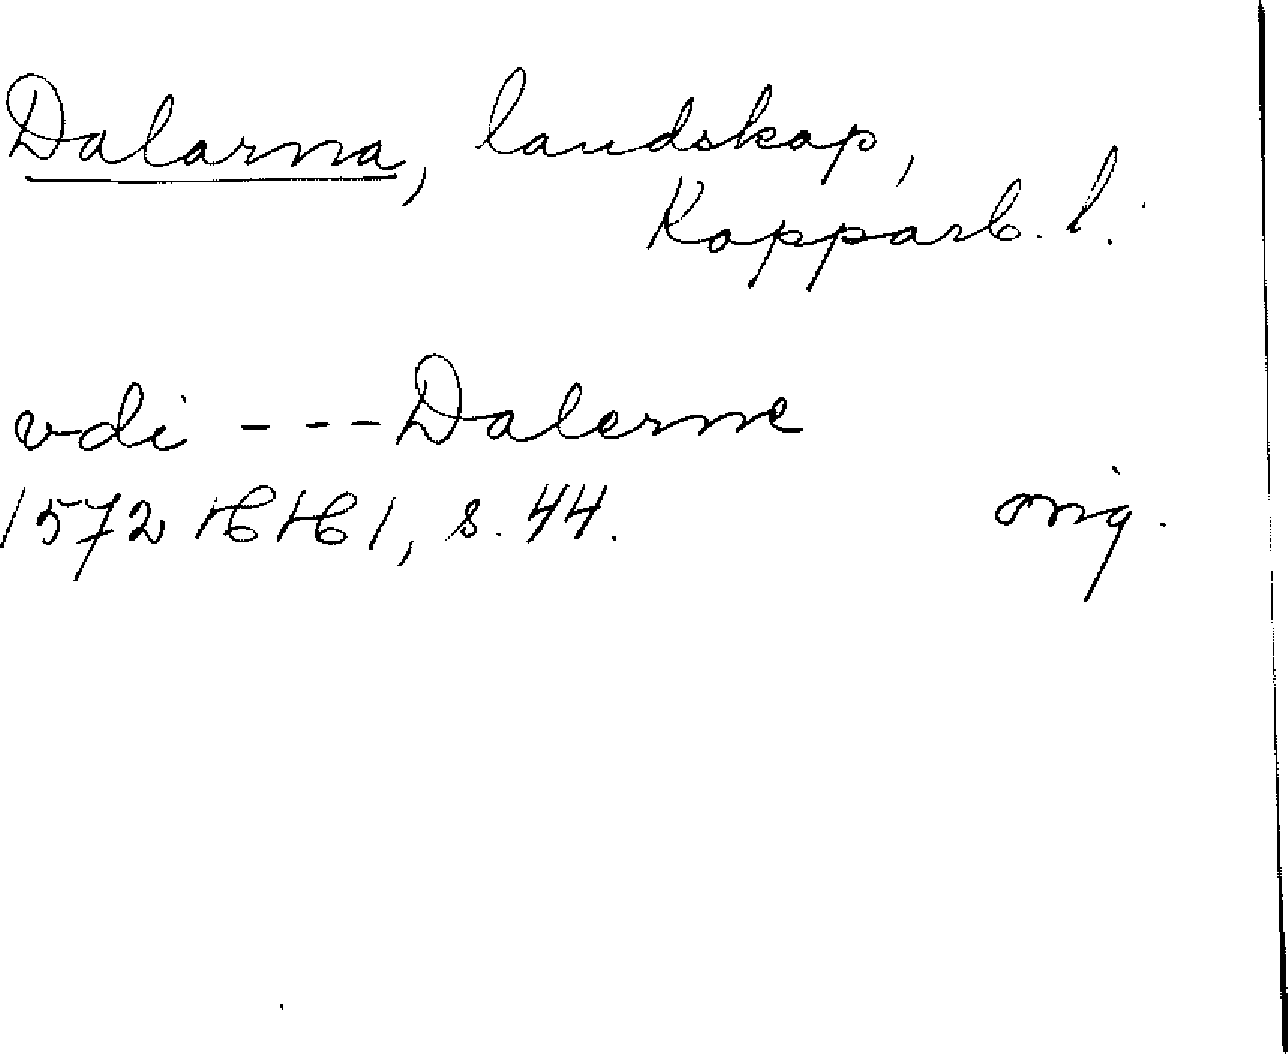 Dalarna, landskap,
Kopparb. l.
vdi --- Dalerne
1572 HH 1, s. 44. orig.